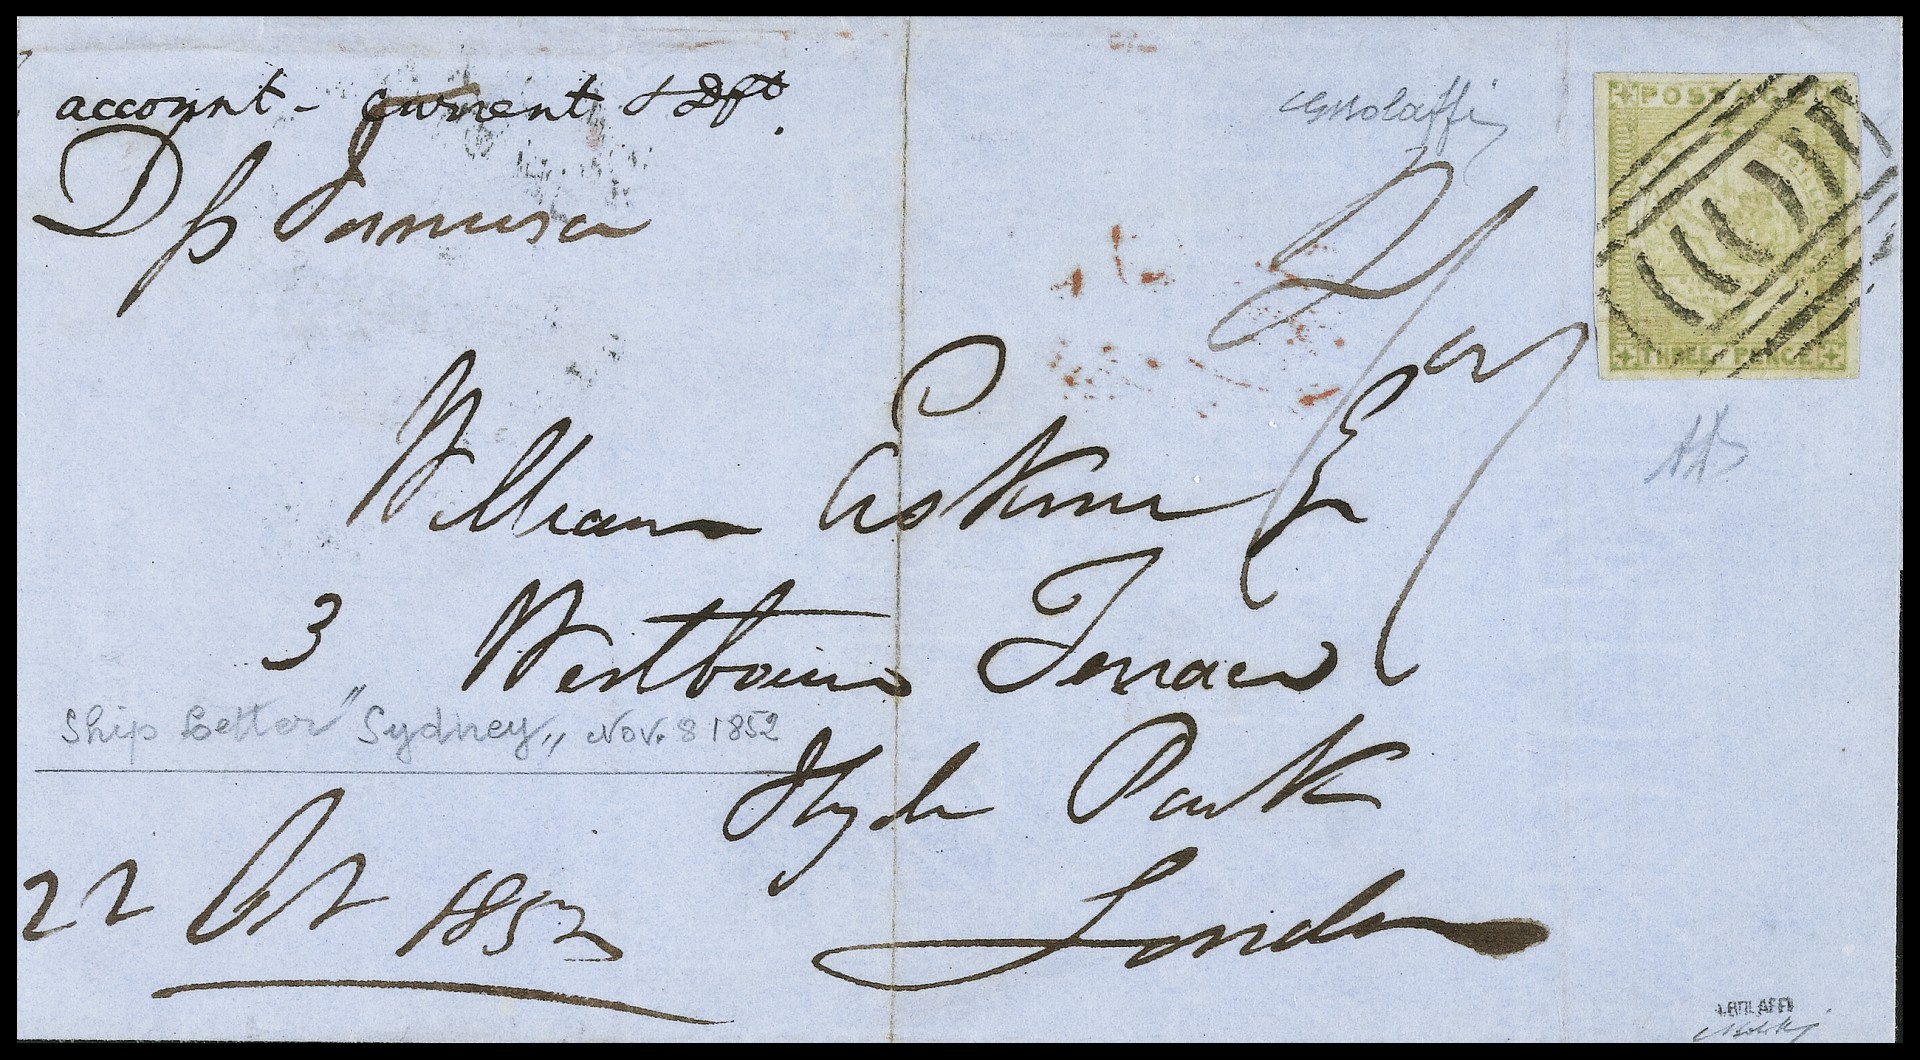 account - current & Dft.
Dp Formosa
GBolaffi
POSTAGE
THREE PENCE
William Erskine Esq
3 Westbourne Terrace
Ship Letter "Sydney,, Nov. 8 1852
Hyde Park
22 Oct 1852
London
A.BOLAFFI